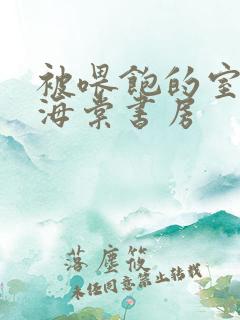 被喂饱的室
海棠书房
落尘筱
未经同意禁止转载